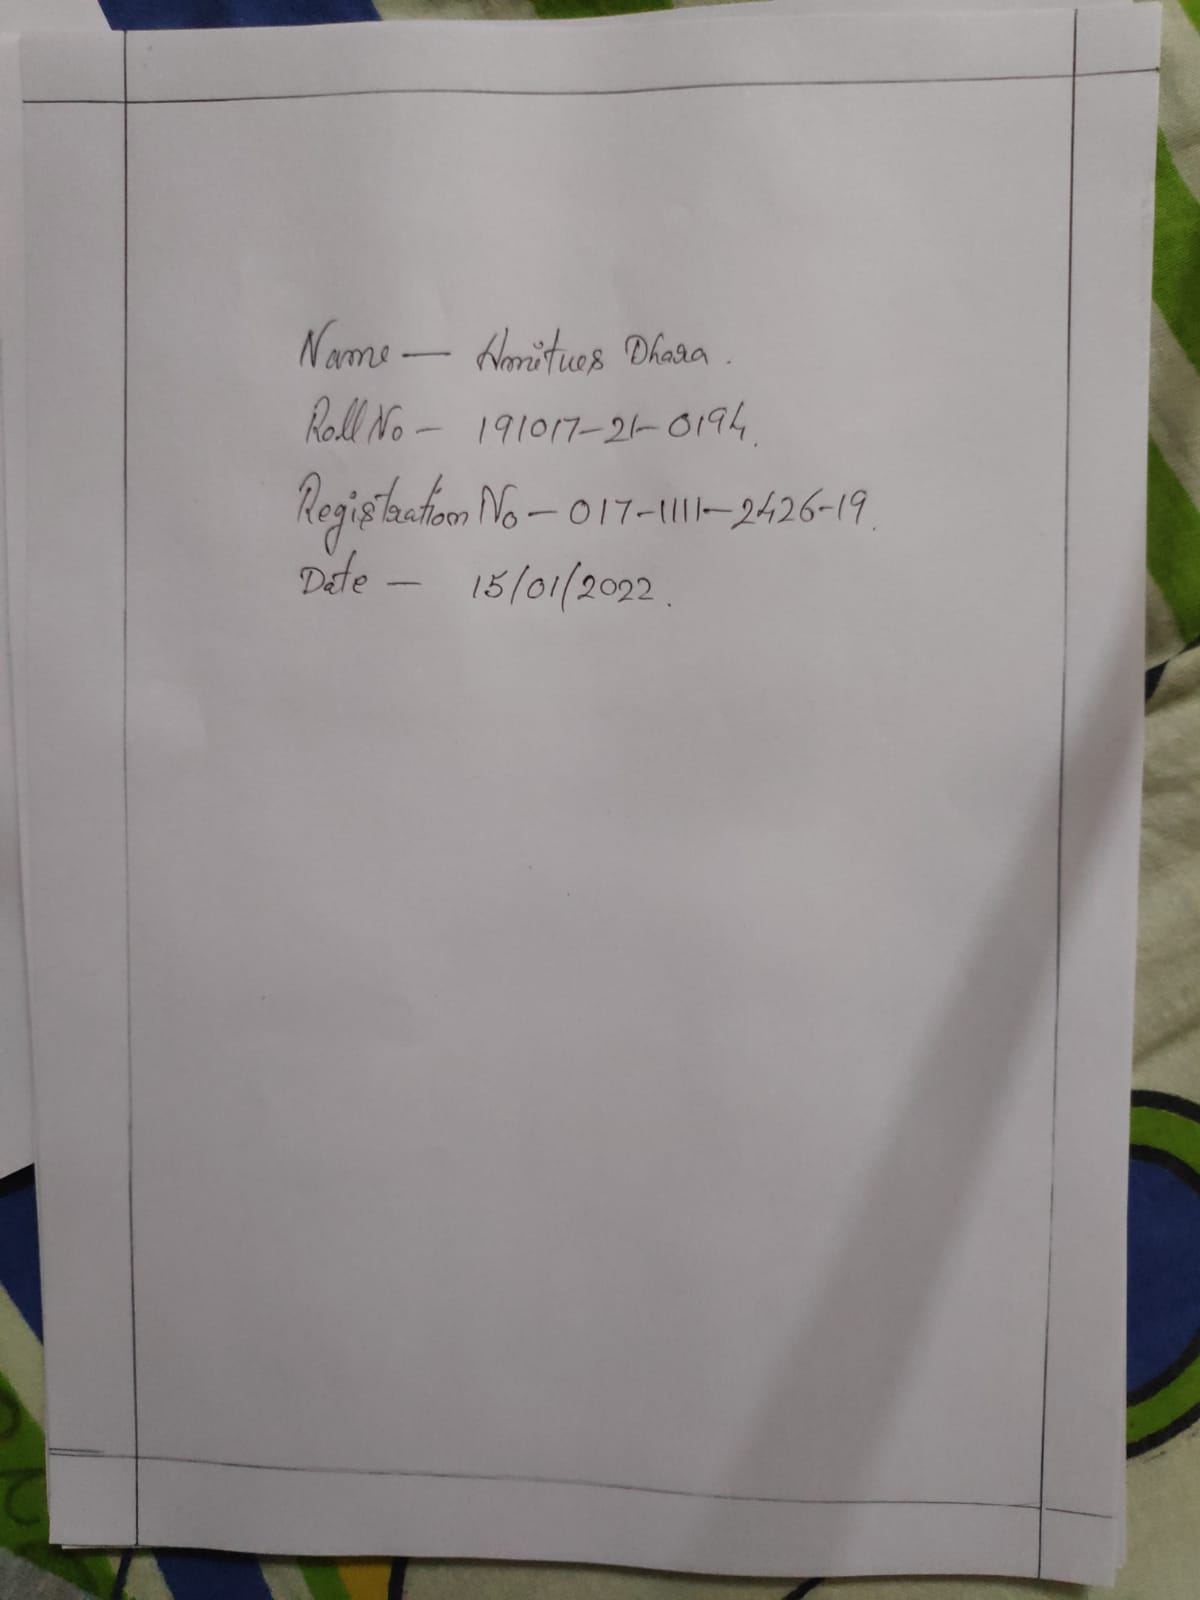 Name — Hmitues Dhara.
Roll No — 191017-21-0194.
Registration No — 017-1111-2426-19.
Date — 15/01/2022.